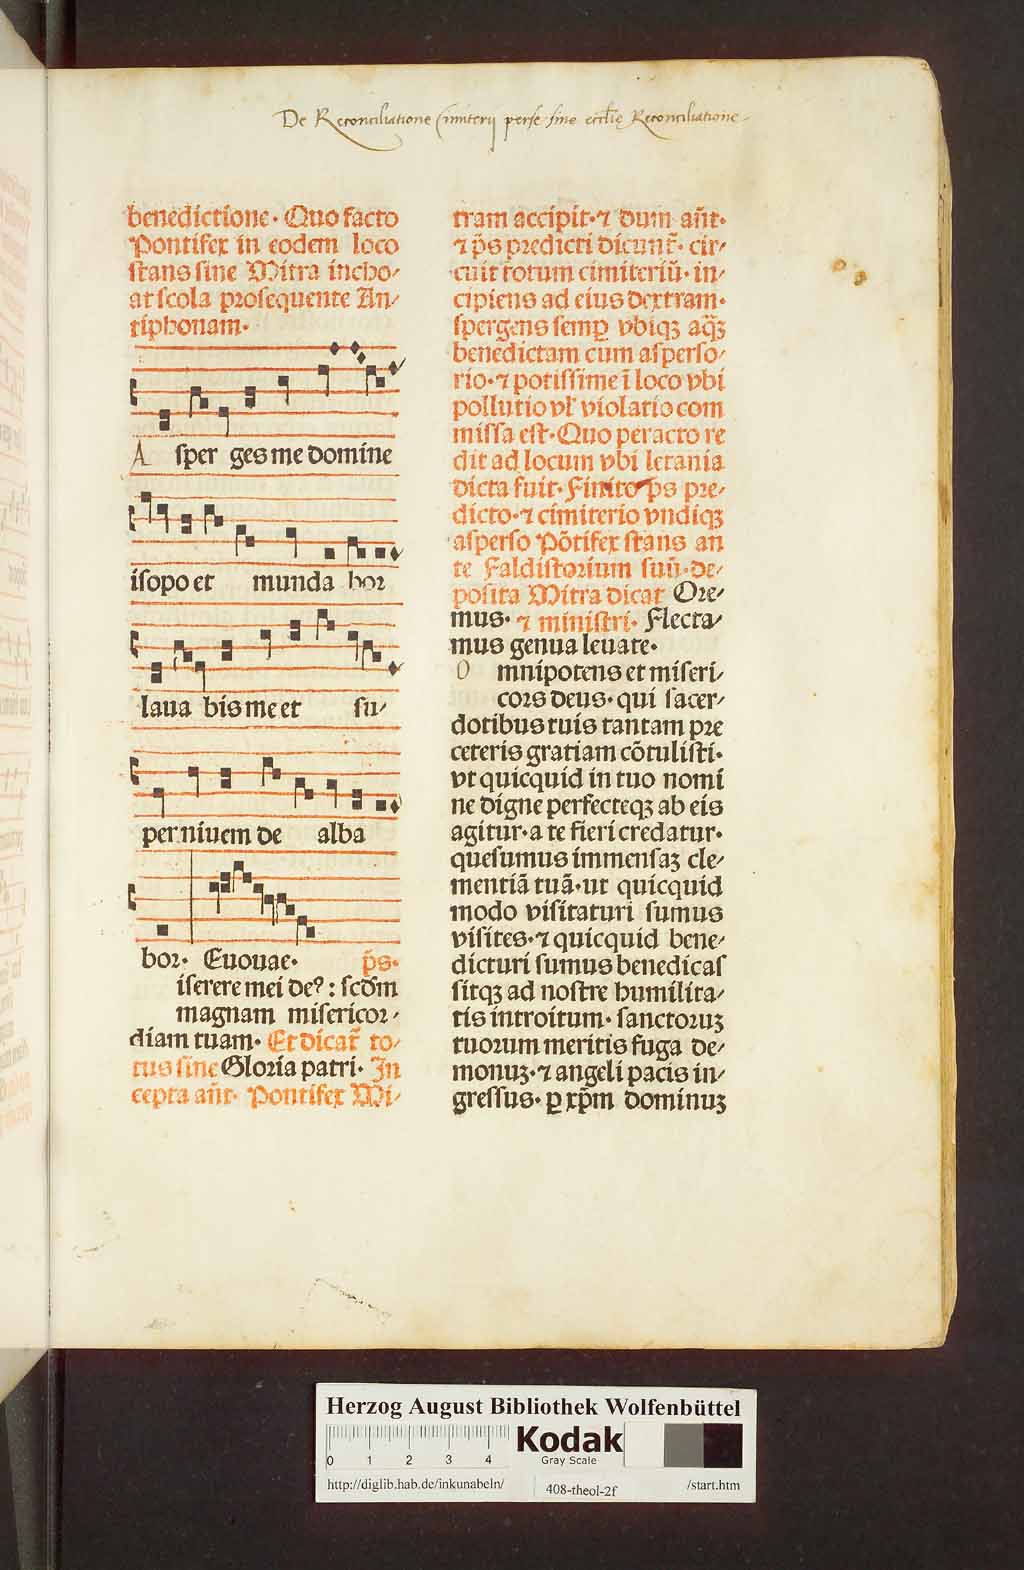 De Reconciliatione Cimiterij per se sine eccl̄ie Reconciliatione
benedictione. Quo facto
Pontifex in eodem loco
stans sine Mitra incho/
at scola prosequente An/
tiphonam.
A sper ges me domine
isopo et munda bor
laua bis me et su/
per niuem de alba
bor. Euouae. p̄s.
iserere mei deꝰ: scd̄m
magnam misericor/
diam tuam. Et dicat̄ to/
tus sine Gloria patri. In
cepta an̄t. Pontifex Mi/
tram accipit. ⁊ dum an̄t.
⁊ p̄s predicti dicunt̄. cir/
cuit totum cimiteriū. in/
cipiens ad eius dextram.
spergens semꝑ vbiqꝫ aq̄ꝫ
benedictam cum asperso/
rio. ⁊ potissime ī loco vbi
pollutio vl' violatio com
missa est. Quo peracto re
dit ad locum vbi letania
dicta fuit. Finito ps pre/
dicto. ⁊ cimiterio vndiqꝫ
asperso Pōtifex stans an
te Faldistorium suū. de/
posita Mitra dicat Ore/
mus. ⁊ ministri. Flecta/
mus genua leuate.
O mnipotens et miseri/
cors deus. qui sacer/
dotibus tuis tantam pre
ceteris gratiam cōtulisti.
vt quicquid in tuo nomi
ne digne perfecteqꝫ ab eis
agitur. a te fieri credatur.
quesumus immensaꝫ cle/
mentiā tuā. ut quicquid
modo visitaturi sumus
visites. ⁊ quicquid bene/
dicturi sumus benedicas
sitqꝫ ad nostre humilita/
tis introitum. sanctoruꝫ
tuorum meritis fuga de/
monuꝫ. ⁊ angeli pacis in/
gressus. ꝑ xp̄m dominuꝫ
Herzog August Bibliothek Wolfenbüttel
0 1 2 3 4
Kodak
Gray Scale
http://diglib.hab.de/inkunabeln/ 408-theol-2f /start.htm